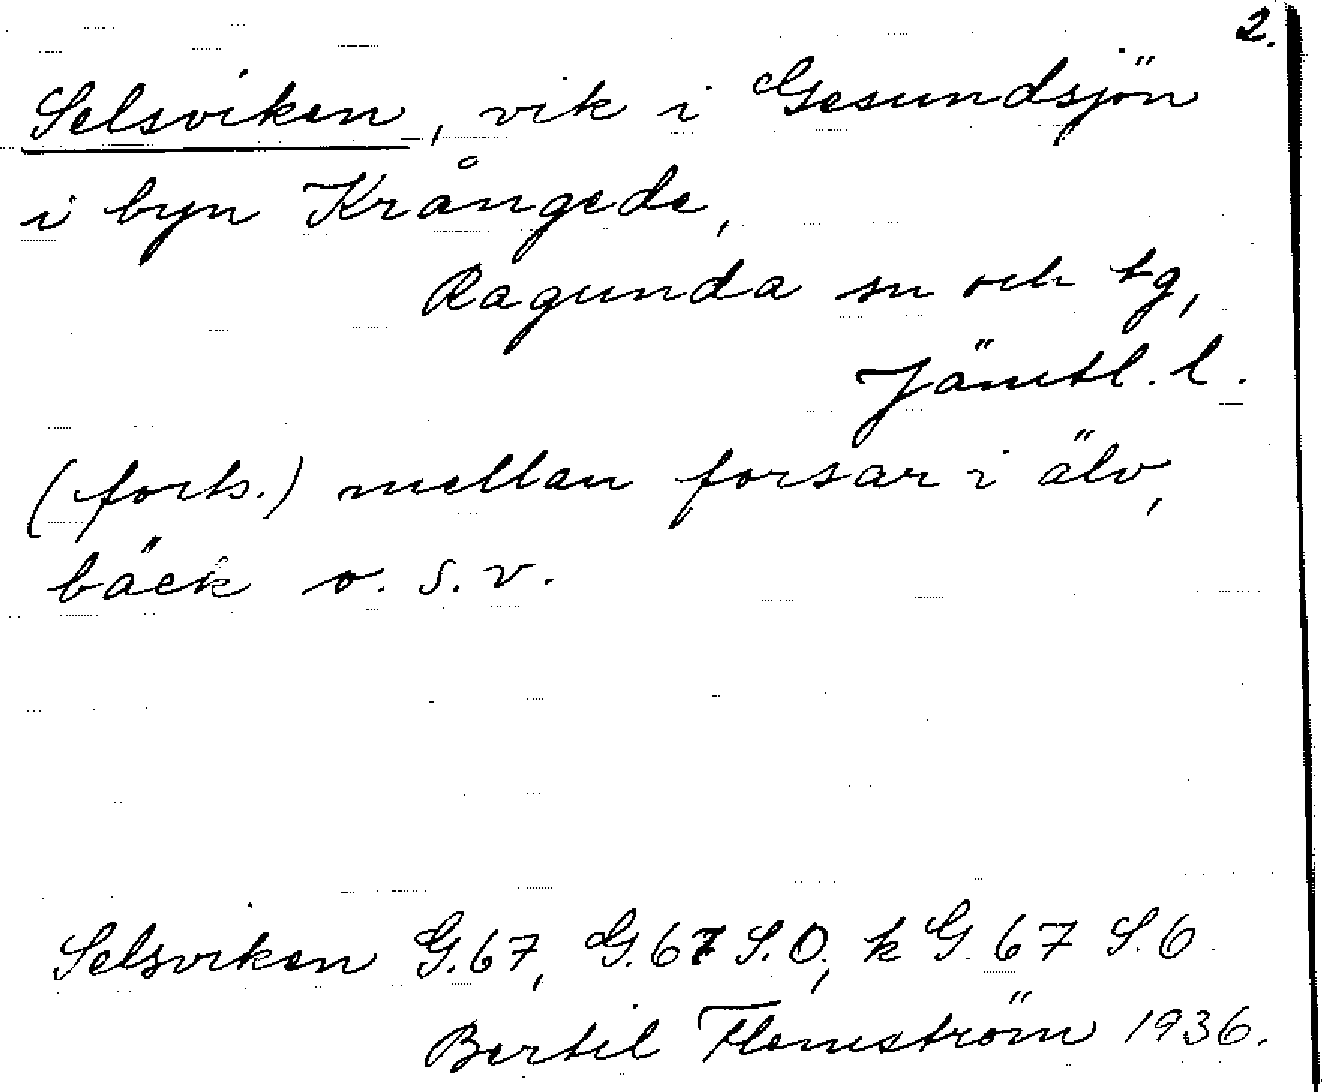 2.
Selsviken, vik i Gesundsjön
i byn Krångede,
Ragunda sn och tg,
Jämtl. l.
(forts.) mellan forsar i älv,
bäck o. s. v.
Selsviken G.67, G.67 S.O, k G.67 S.6
Bertil Flemström 1936.